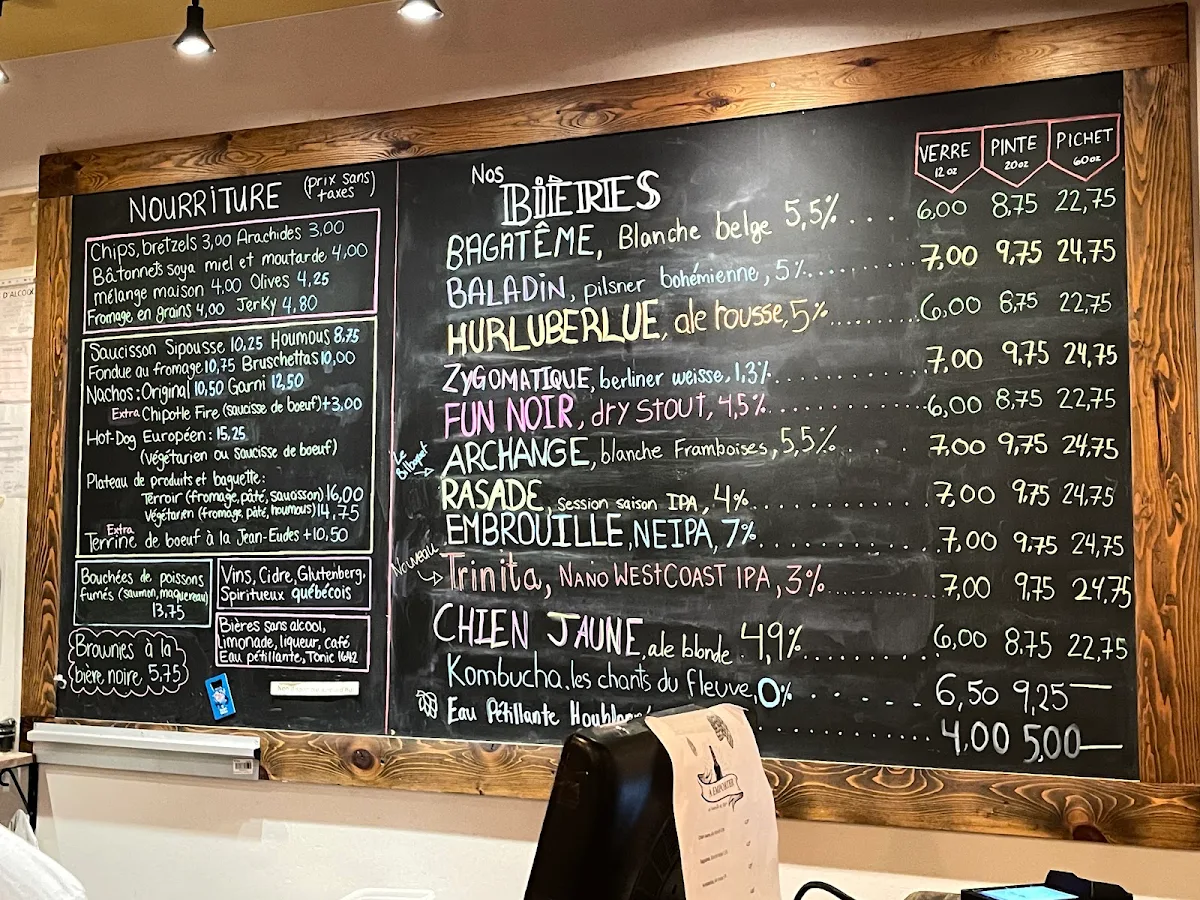 NOURRITURE (prix sans taxes)
Chips, bretzels 3,00 Arachides 3,00
Bâtonnets soya miel et moutarde 4,00
mélange maison 4,00 Olives 4,25
Fromage en grains 4,00 Jerky 4,80
Saucisson Sipousse 10,25 Houmous 8,75
Fondue au fromage 10,75 Bruschettas 10,00
Nachos: Original 10,50 Garni 12,50
Extra Chipotle Fire (saucisse de boeuf) +3,00
Hot-Dog Européen: 15,25
(végétarien ou saucisse de boeuf)
Plateau de produits et baguette:
Terroir (fromage, pâté, saucisson) 16,00
Végétarien (fromage, pâté, houmous) 14,75
Extra
Terrine de boeuf à la Jean-Eudes +10,50
Bouchées de poissons
fumés (saumon, maquereau)
13,75
Vins, Cidre, Glutenberg,
Spiritueux québécois
Bières sans alcool,
limonade, liqueur, café,
Eau pétillante, Tonic 1642
Brownies à la
bière noire 5,75
Nos
BIÈRES
VERRE 12 oz PINTE 20 oz PICHET 60 oz
BAGATÊME, Blanche belge 5,5%.... 6,00 8,75 22,75
BALADIN, pilsner bohémienne, 5%........ 7,00 9,75 24,75
HURLUBERLUE, ale rousse, 5%........ 6,00 8,75 22,75
ZYGOMATIQUE, berliner weisse, 1,3%........ 7,00 9,75 24,75
FUN NOIR, dry stout, 4,5%........ 6,00 8,75 22,75
Le Bilboquet
ARCHANGE, blanche Framboises, 5,5%...... 7,00 9,75 24,75
RASADE, session saison IPA, 4% 7,00 9,75 24,75
EMBROUILLE, NEIPA, 7%........ 7,00 9,75 24,75
Nouveau
Trinita, NANO WESTCOAST IPA, 3%........ 7,00 9,75 24,75
CHIEN JAUNE, ale blonde 4,9%........ 6,00 8,75 22,75
Kombucha, les chants du fleuve, 0% ...... 6,50 9,25 —
Eau Pétillante ........ 4,00 5,00 —
À EMPORTER
D'ALCOOL